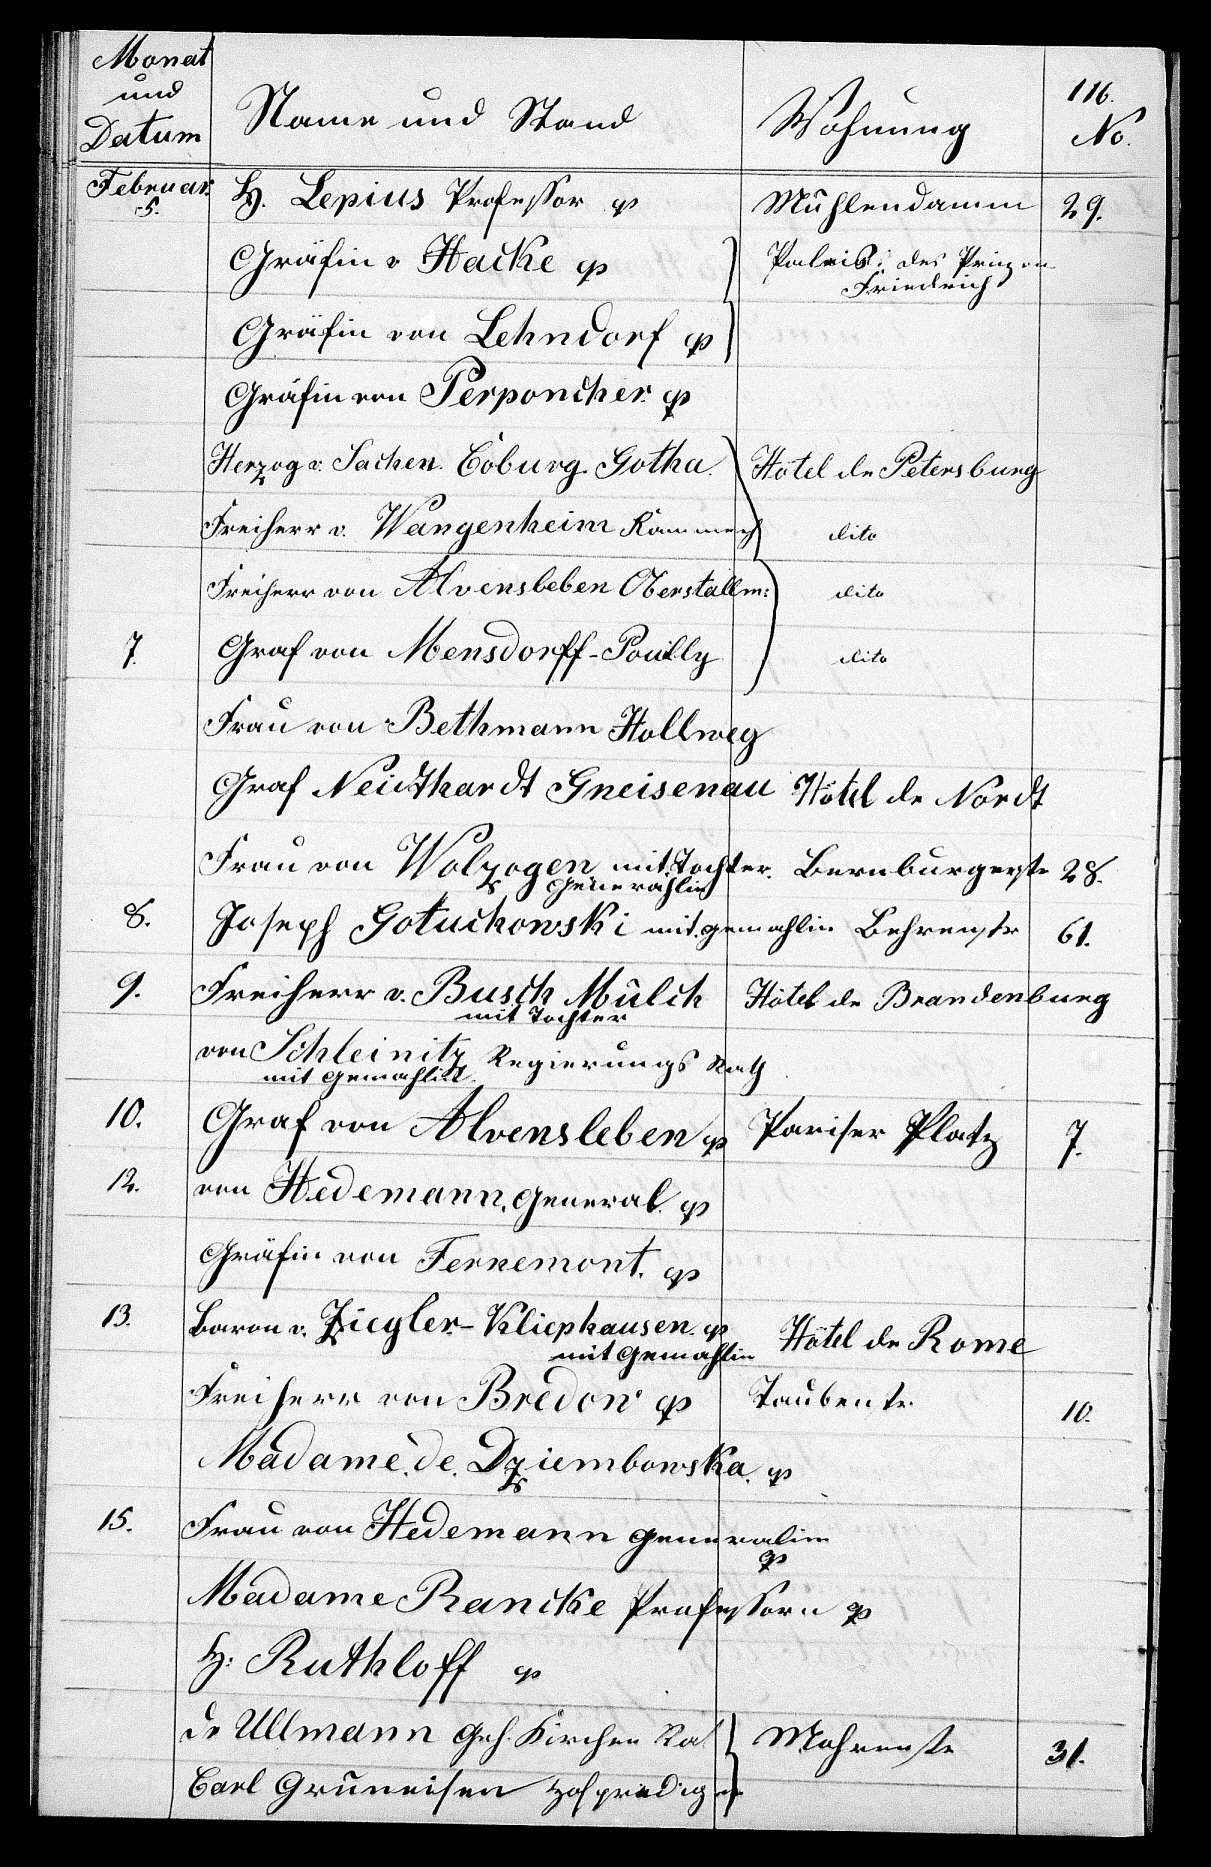 Monat
und
Datum
Name und Stand
Wohnung
116.
No.
Februar.
5.
H. Lepius Professor
Mühlendamm 29.
Gräfin v Hacke
Palais: des Prinzen
Friedrich
Gräfin von Lehndorf
Gräfin von Perponcher.
Herzog v. Sachen. Coburg. Gotha. Hôtel de Petersburg
Freiherr v. Wangenheim Kammerh dito
Freiherr von Alvensleben Oberstallm: dito
7. Graf von Mensdorff-Pouilly dito
Frau von Bethmann Hollweg
Graf Neidthardt Gneisenau Hôtel de Nordt
Frau von Wolzogen mit Tochter. Bernburgerstr 28.
Generahlin
8. Joseph Gotuchowski mit gemahlin Behrenstr 61.
9. Freiherr v. Busch Mülch Hôtel de Brandenburg
mit Tochter
von Schleinitz Regierungs Rath
mit Gemahlin.
10. Graf von Alvensleben Pariser Platz 7.
12. von Hedemann, General.
Gräfin von Fernemont.
13. Baron v. Ziegler-Kliephausen. Hôtel de Rome
mit Gemahlin
Freiherr von Bredow Taubenstr. 10.
Madame. de. Dziembowska.
15. Frau von Hedemann Generalin
Madame Rancke Professorn
H. Ruthloff
de Ullmann Geh. Kirchen Rat Mohrenstr 31.
Carl Grüneisen Hofprediger